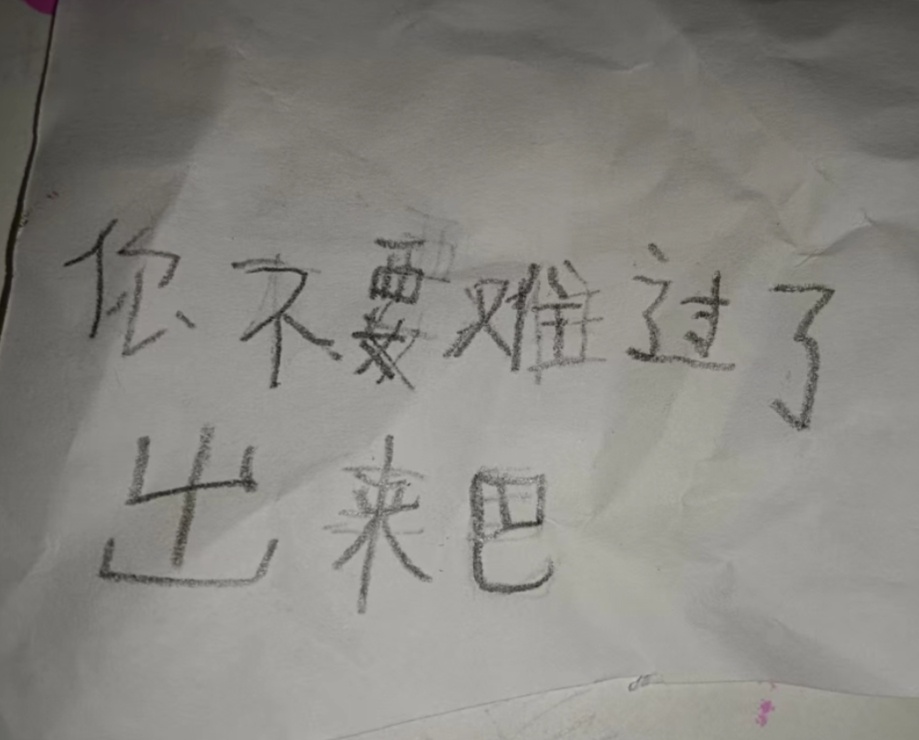 你不要难过了
出来巴